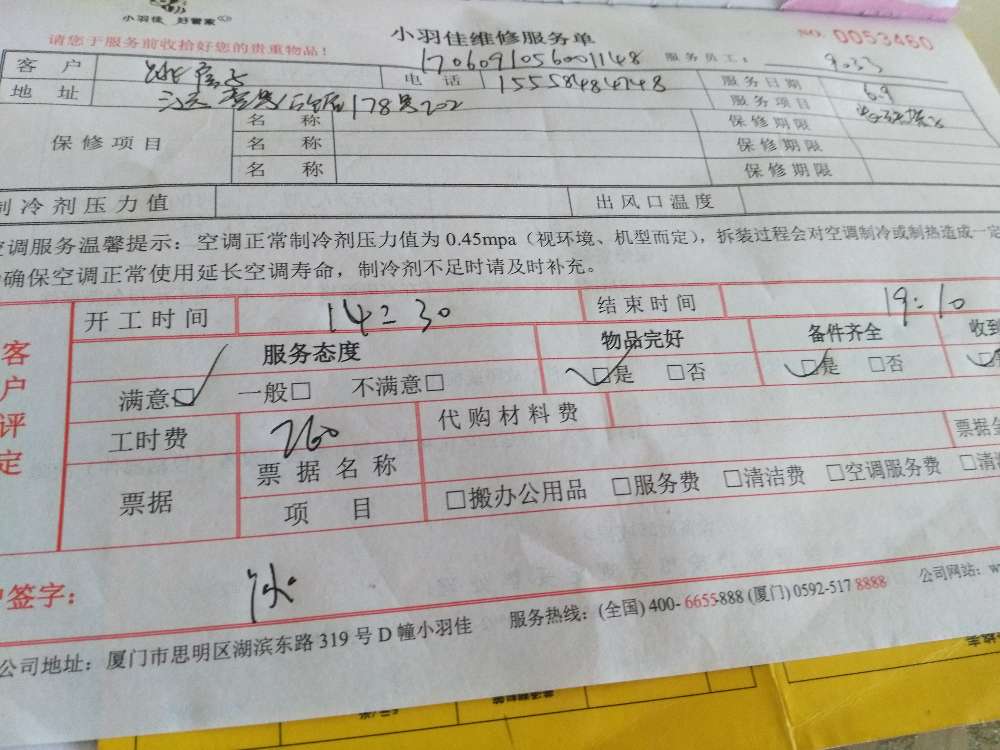 小羽佳 好管家
请您于服务前收拾好您的贵重物品！
小羽佳维修服务单
NO. 0053460
1706091056001148
服务员工： 9033
客 户
电 话 15558484748
服务日期 6.9
地 址 178号202
服务项目
保修项目
名 称 保修期限
名 称 保修期限
名 称 保修期限
制冷剂压力值 出风口温度
空调服务温馨提示：空调正常制冷剂压力值为 0.45mpa（视环境、机型而定），拆装过程会对空调制冷或制热造成一定
确保空调正常使用延长空调寿命，制冷剂不足时请及时补充。
客户评定
开工时间 14:30 结束时间 19:10
服务态度 物品完好 备件齐全 收到
满意□ 一般□ 不满意□ □是 □否 □是 □否
工时费 260 代购材料费
票据 票据名称 票据
项 目 □搬办公用品 □服务费 □清洁费 □空调服务费 □清
签字：
公司地址：厦门市思明区湖滨东路 319 号 D 幢小羽佳 服务热线：(全国) 400-6655-888 (厦门) 0592-517 8888 公司网站：w